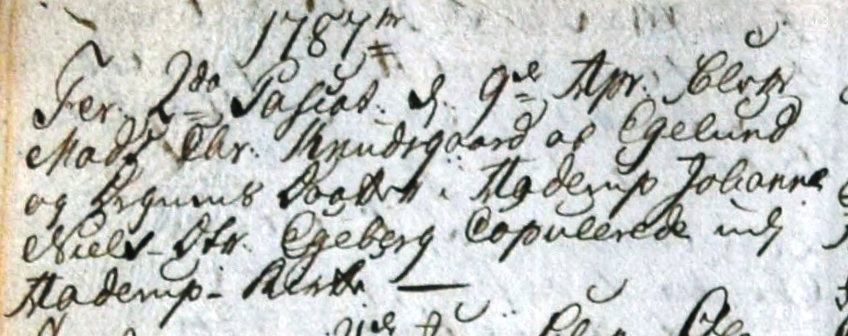 1787
Fer. 2da Pascat. d. 9de Apr. blev
Mads Chr. Knudsgaard af Egelund
og Degnens Daatter i Haderup Johanne
Niels Dtr. Egeberg Copulerede udj
Haderup-Kirke —